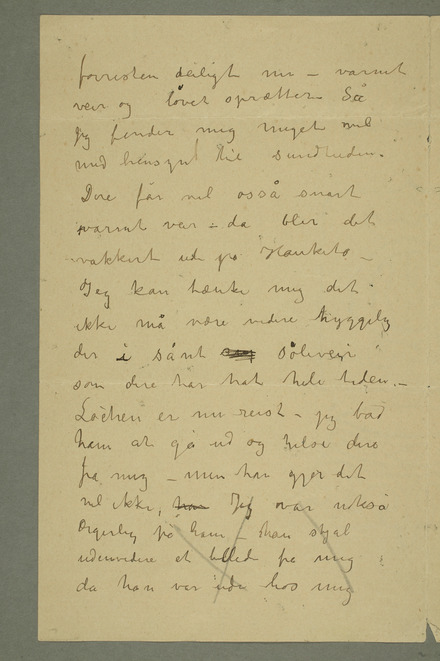 forresten deiligt nu – varmt
veir og løvet sprætter. Så
jeg finder mig meget vel
med hensyn til sundheden.
Dere får vel osså snart
varmt veir – da blir det
vakkert ude på Hauketo –
Jeg kan tænke mig det
ikke må være videre hyggelig
der i sånt søleveir
som dere har hat hele tiden. –
Løchen er nu reist – jeg bad
ham at gå ud og hilse dere
fra mig – men han gjør det
vel ikke, han Jeg var också
ærgerlig på ham – han stjal
udenvidere et billed fra mig
da han var ude hos mig